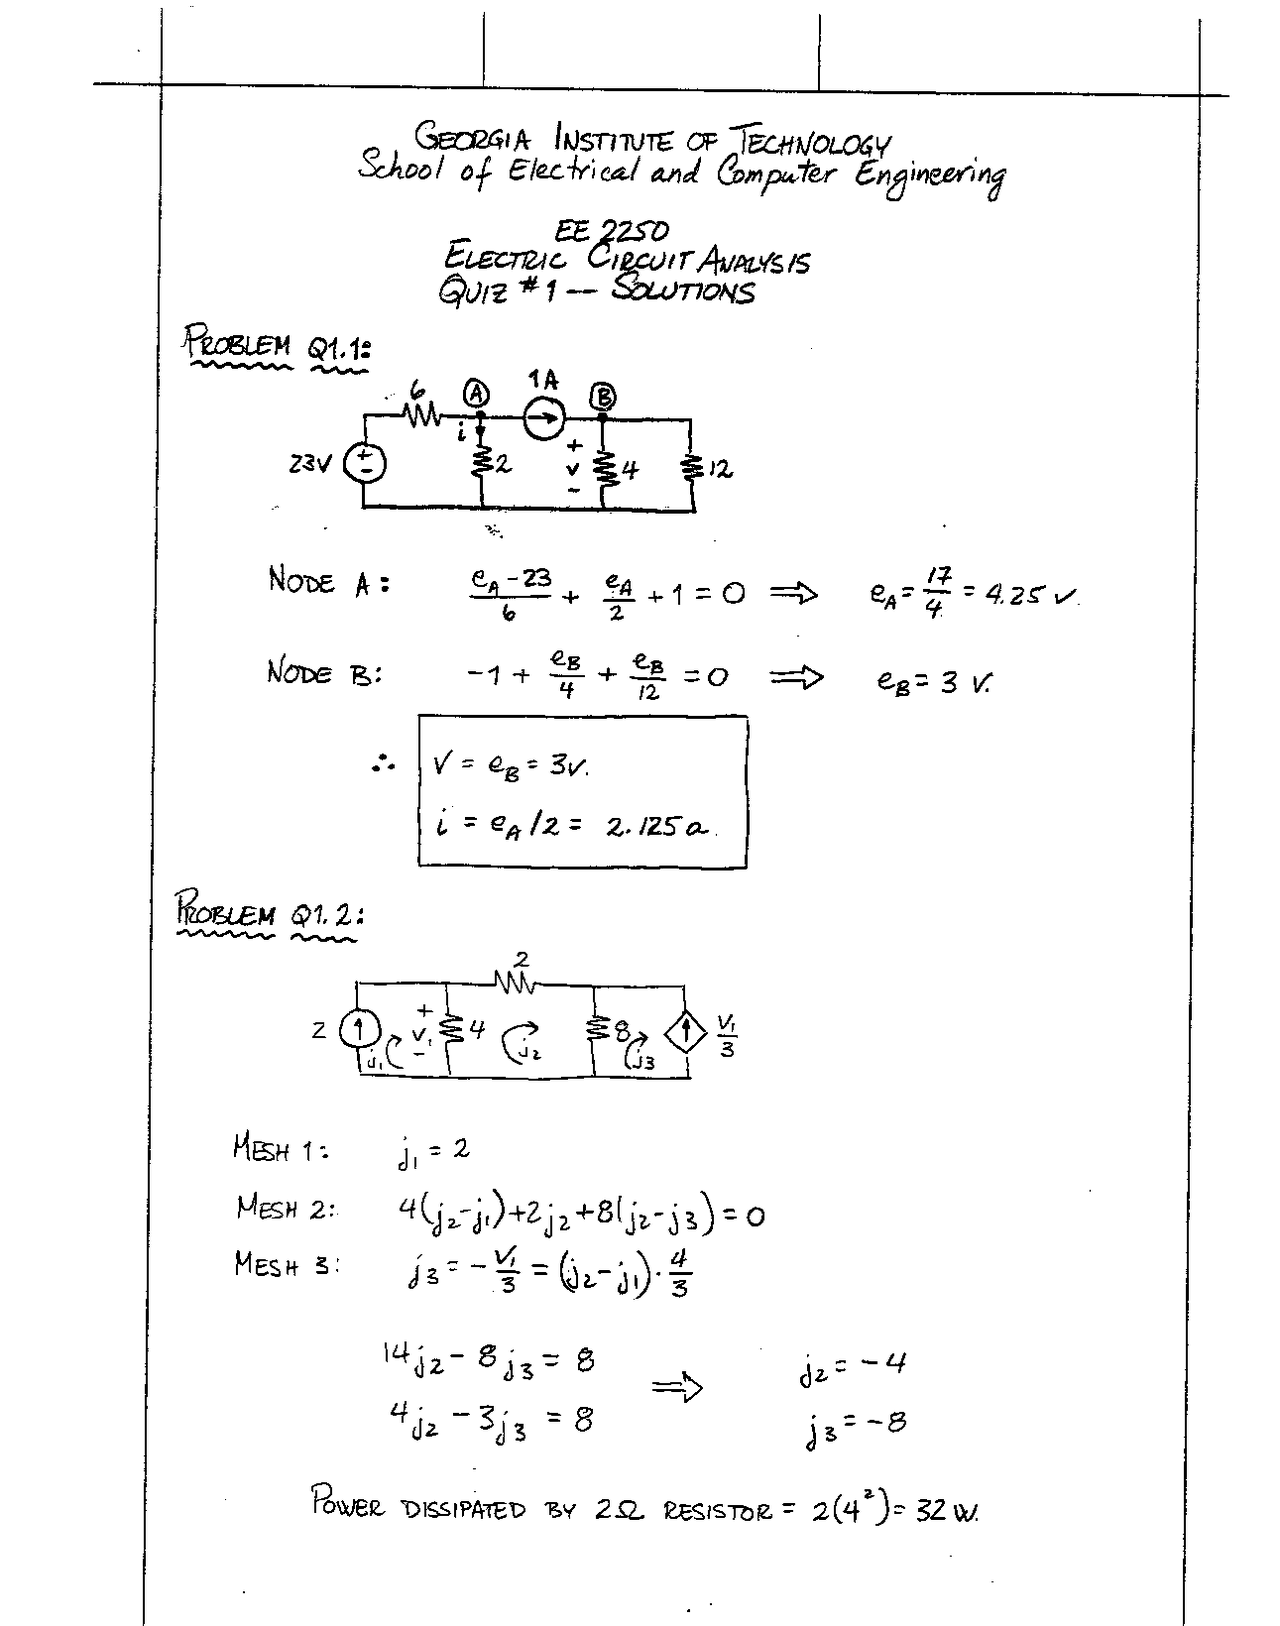 GEORGIA INSTITUTE OF TECHNOLOGY
School of Electrical and Computer Engineering
EE 2250
ELECTRIC CIRCUIT ANALYSIS
QUIZ #1 — SOLUTIONS
PROBLEM Q1.1:
6 A 1A B
i + v −
23V + − 2 4 12
NODE A: (e_A − 23)/6 + e_A/2 + 1 = 0 ⟹ e_A = 17/4 = 4.25 v.
NODE B: −1 + e_B/4 + e_B/12 = 0 ⟹ e_B = 3 v.
∴ v = e_B = 3v.
i = e_A/2 = 2.125 a.
PROBLEM Q1.2:
2
2 + v₁ − 4 8 v₁/3
j₁ j₂ j₃
MESH 1: j₁ = 2
MESH 2: 4(j₂−j₁)+2j₂+8(j₂−j₃)=0
MESH 3: j₃ = −v₁/3 = (j₂−j₁)·4/3
14j₂ − 8j₃ = 8 ⟹ j₂ = −4
4j₂ − 3j₃ = 8 j₃ = −8
POWER DISSIPATED BY 2Ω RESISTOR = 2(4²) = 32 W.